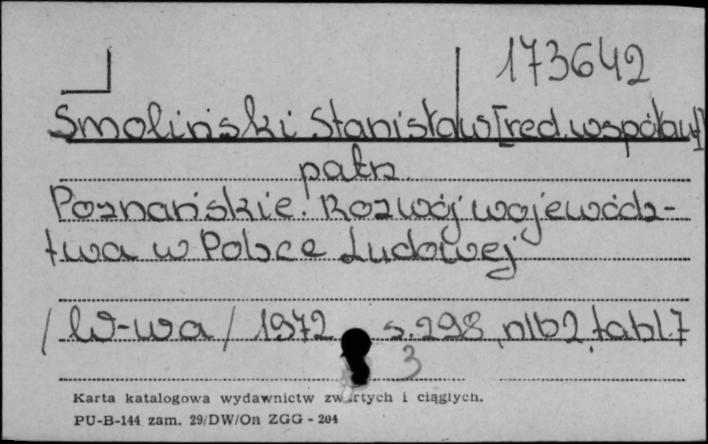 173642
Smoliński Stanisław [red. współaut]
patrz
Poznańskie. Rozwój wojewódz-
twa w Polsce Ludowej
/W-wa/ 1972 s. 298, nlb 2, tabl. 7
3
Karta katalogowa wydawnictw zwartych i ciągłych.
PU-B-144 zam. 29/DW/On ZGG - 204